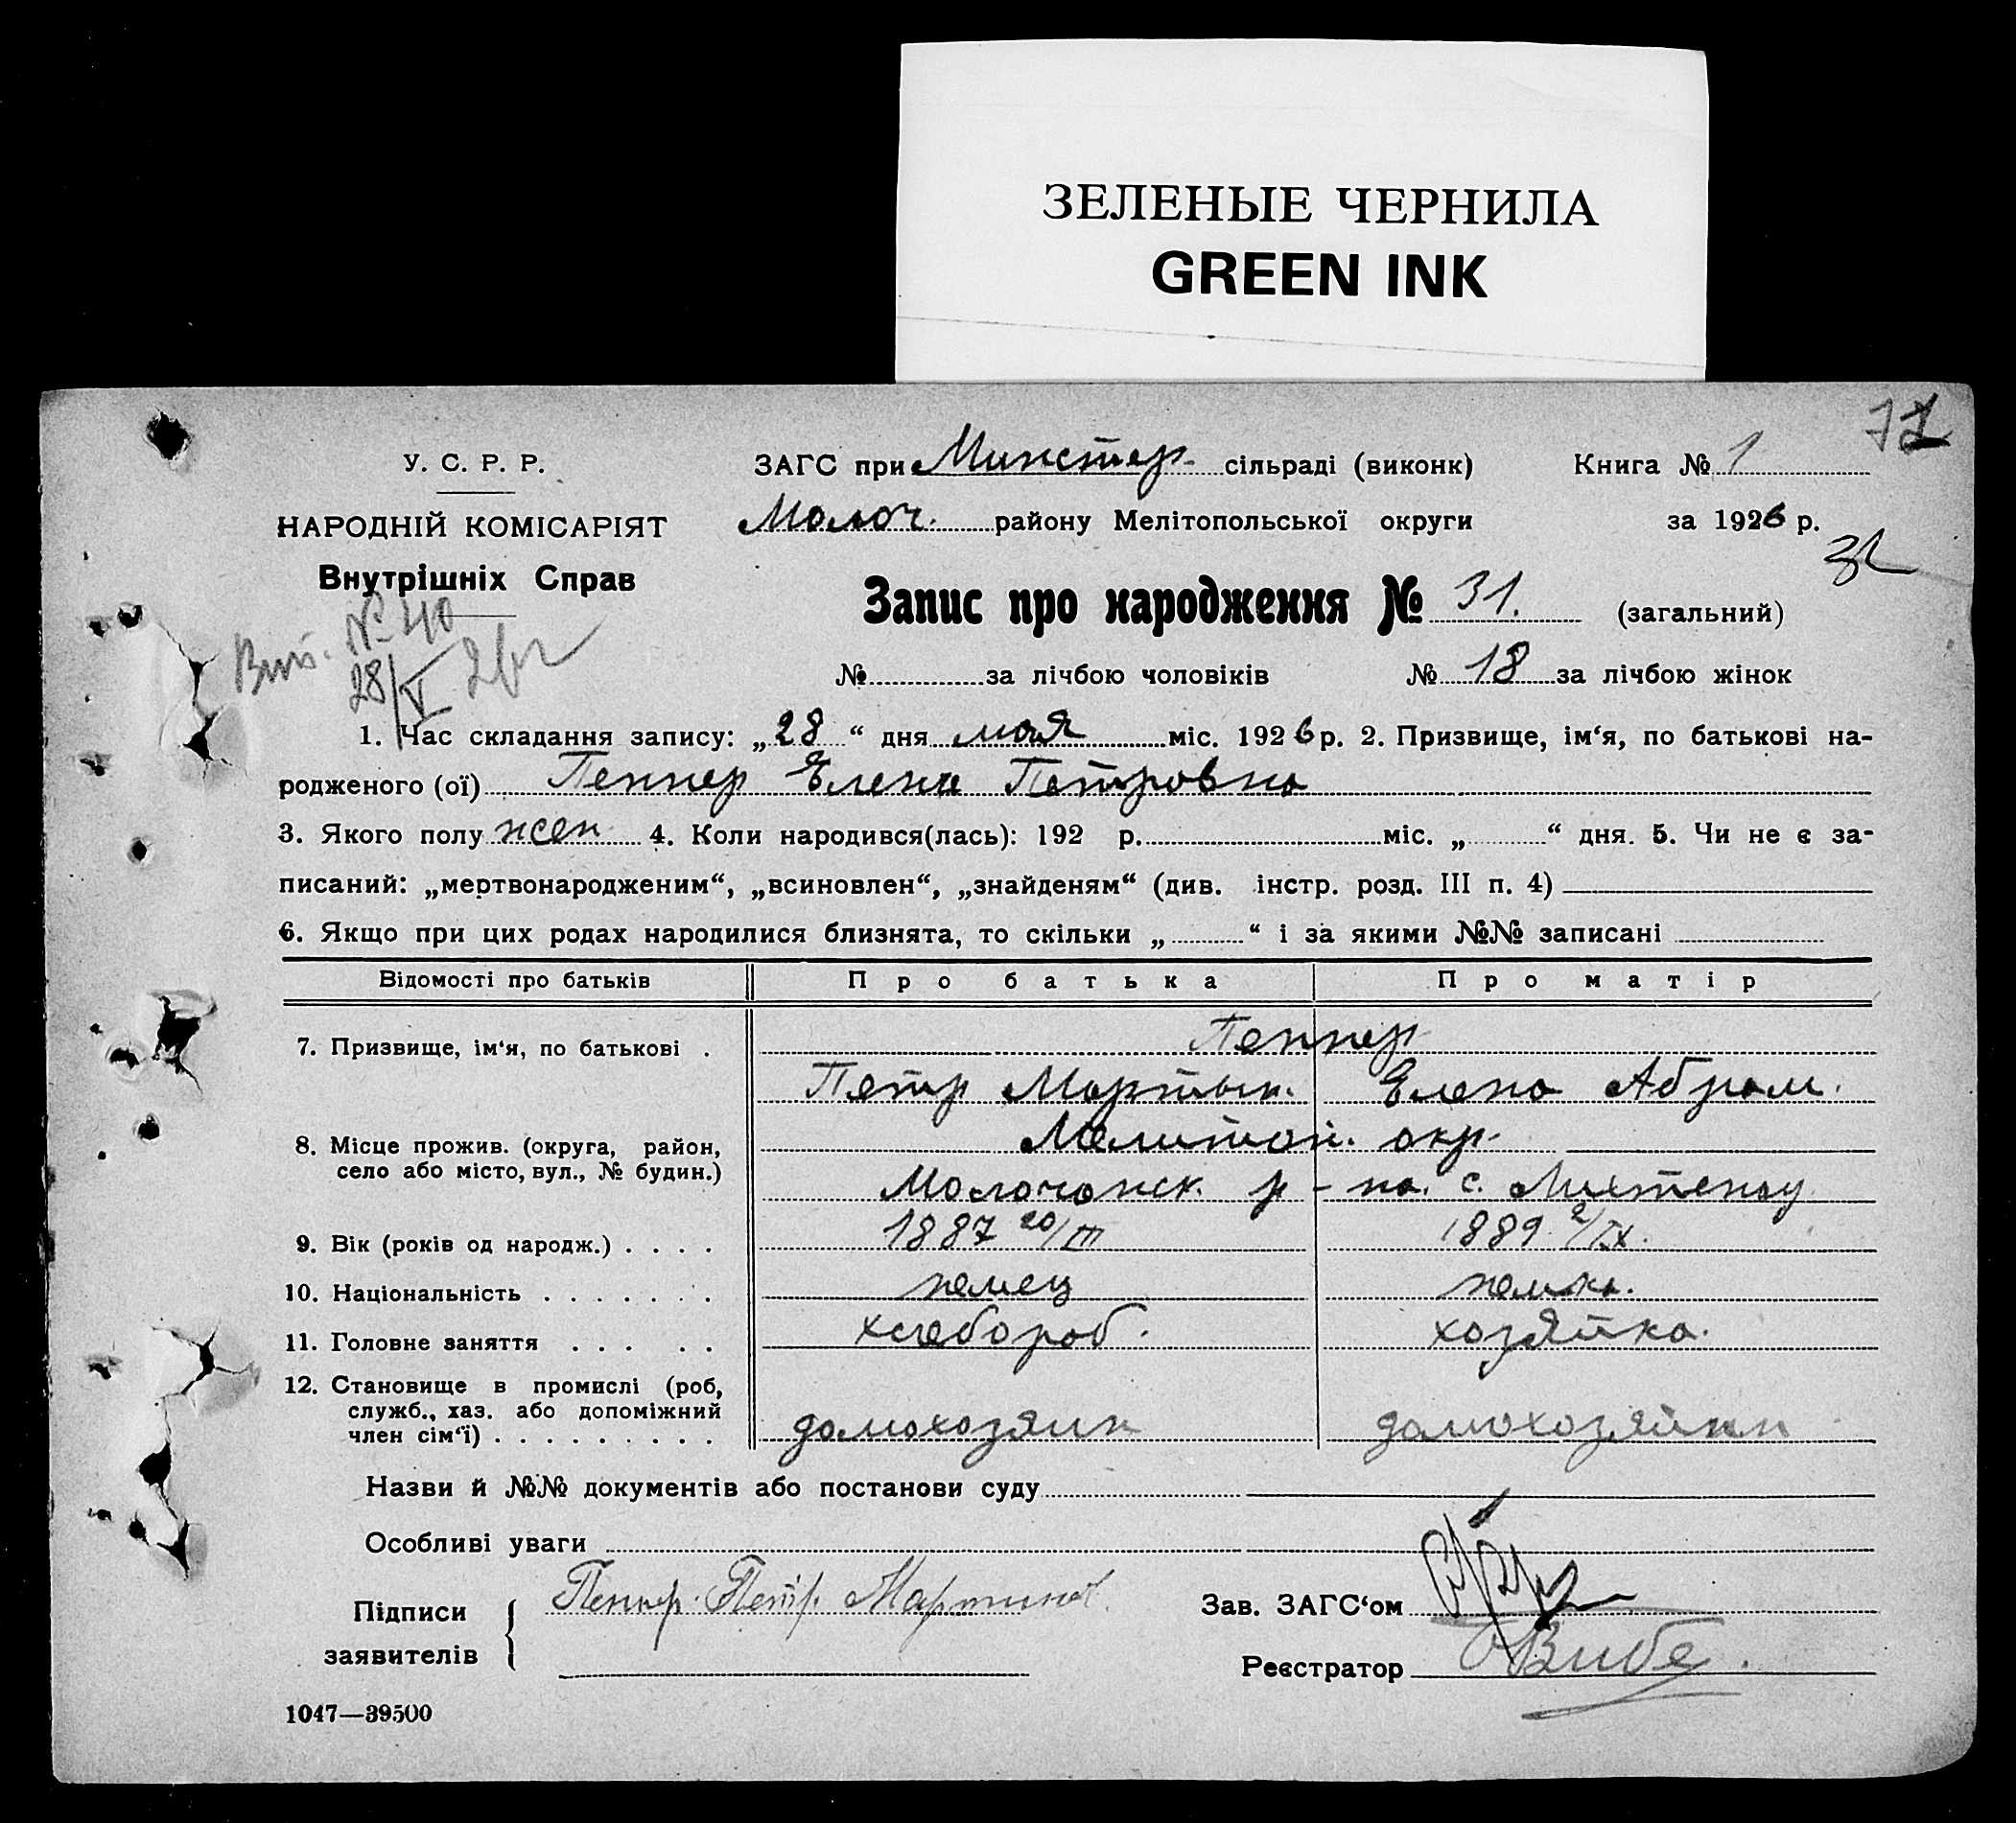 ЗЕЛЕНЫЕ ЧЕРНИЛА
GREEN INK
У. С. Р. Р.
НАРОДНІЙ КОМІСАРІЯТ
Внутрішніх Справ
№ 40
28/V 26 г
ЗАГС при Минстер. сільраді (виконк) Книга № 1
Молоч. району Мелітопольської округи за 1926 р.
Запис про народження № 31. (загальний)
№ за лічбою чоловіків № 18 за лічбою жінок
1. Час складання запису: „28“ дня мая міс. 1926 р. 2. Призвище, ім‘я, по батькові на-
родженого (ої) Пеннер Елена Петровна
3. Якого полу жен 4. Коли народився(лась): 192 р. міс. „ “ дня. 5. Чи не є за-
писаний: „мертвонародженим“, „всиновлен“, „знайденям“ (див. інстр. розд. III п. 4)
6. Якщо при цих родах народилися близнята, то скільки „ “ і за якими №№ записані
Відомості про батьків Про батька Про матір
7. Призвище, ім‘я, по батькові . Пеннер
Петр Мартын. Елена Абрам.
8. Місце прожив. (округа, район, село або місто, вул., № будин.) Мелитоп. окр.
Молочанск. р-на. с. Лихтенау
9. Вік (років од народж.) . . . . 1887 20/III 1889 2/IX.
10. Національність . . . . . . . немец немка.
11. Головне заняття . . . . . хлебороб. хозяйка.
12. Становище в промислі (роб,
служб., хаз. або допоміжний
член сім‘ї) . . . . . . . . . домохозяин домохозяйки
Назви й №№ документів або постанови суду
Особливі уваги
Підписи заявителів Пеннер Петр. Мартинов.
Зав. ЗАГС‘ом
Реєстратор Вибе.
1047—39500